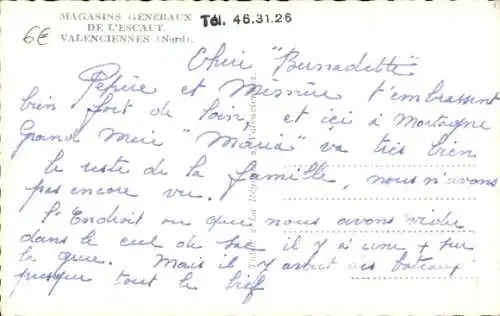 6€
MAGASINS GÉNÉRAUX
DE L'ESCAUT
VALENCIENNES (Nord).
Tél. 46.31.26
Chère "Bernadette"
Pépère et Mémère t'embrassent
bien fort de loin, et ici à Mortagne
Grand Mère "Maria" va très bien
le reste de la famille, nous n'avons
pas encore vu.
L'Endroit ou que nous avons vidé
dans le cul de sac il y a une + sur
la grue. Mais il y des bateaux
presque tout le bief